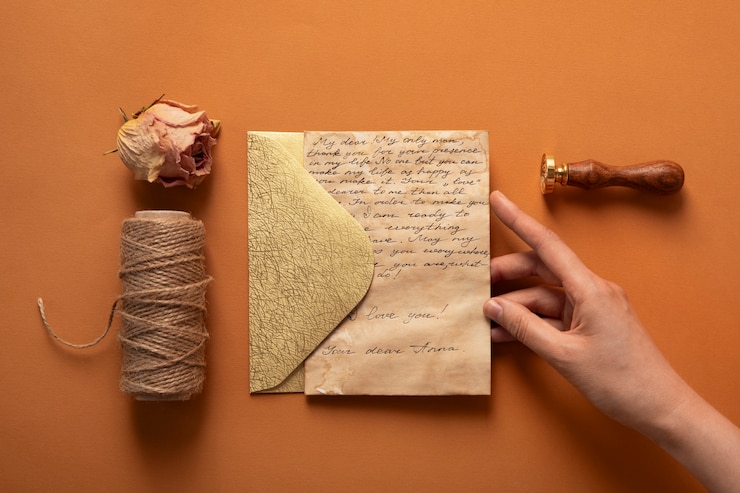 My dear! My only man,
thank you for your presence
in my life. No one but you can
make my life as happy as
you make it. Your „love"
dearer to me than all
In order to make you
I am ready to
everything
have. May my
you everywhere,
you are, what-
do!
I love you!
Your dear Anna.